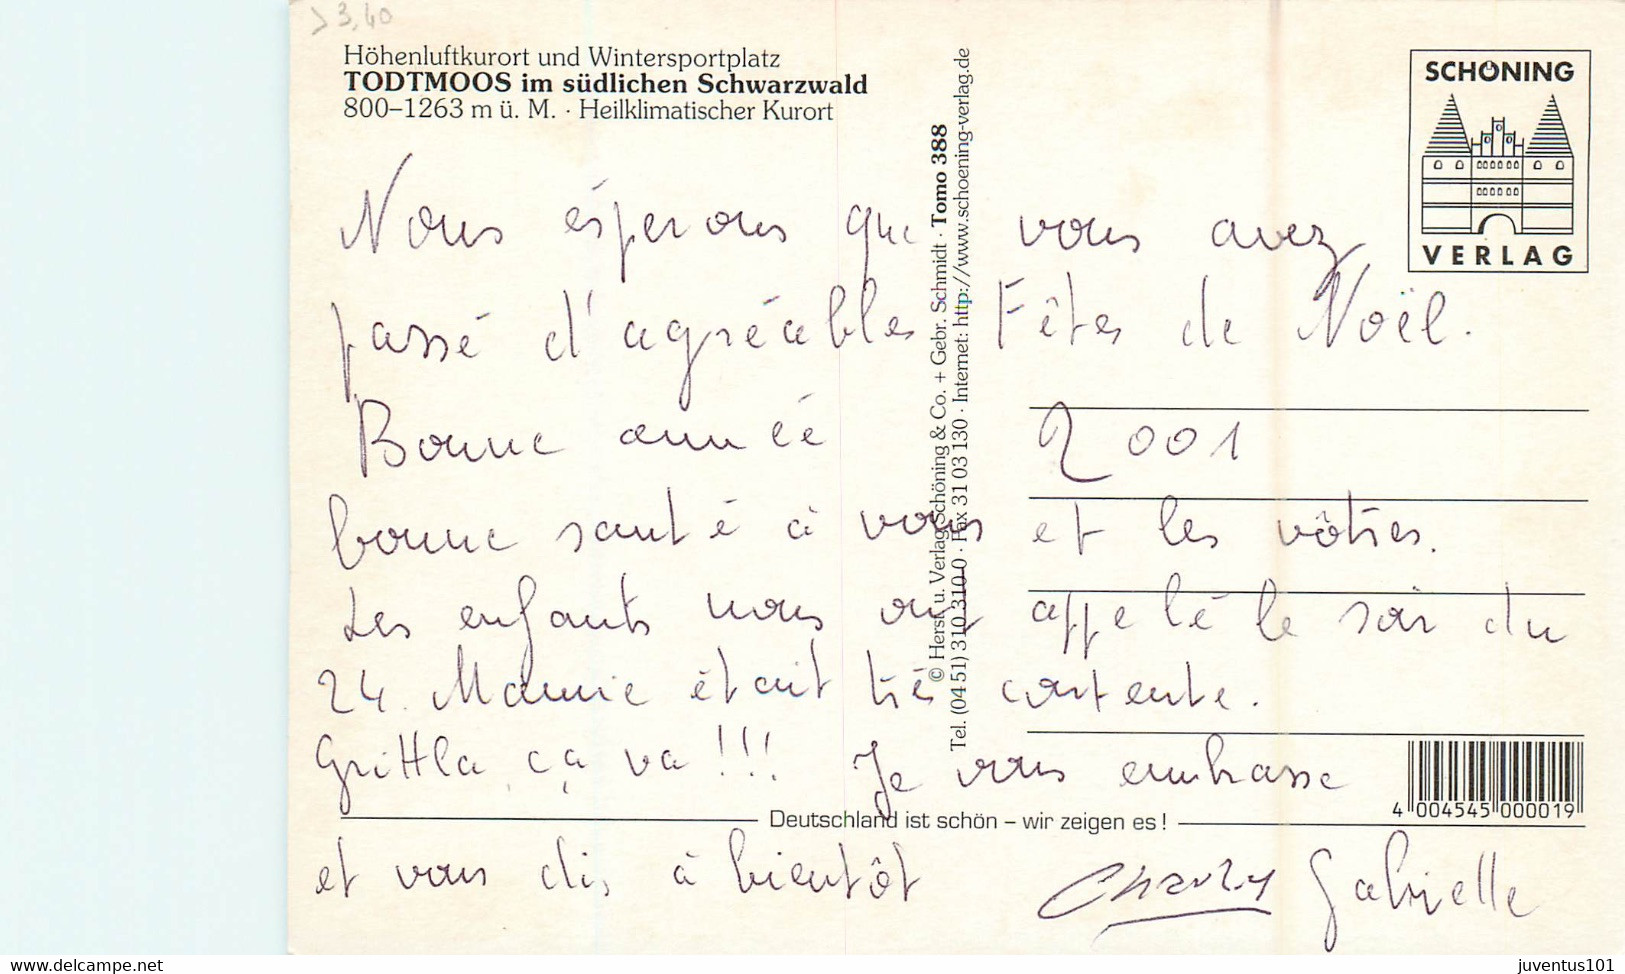 > 3,40
Höhenluftkurort und Wintersportplatz
TODTMOOS im südlichen Schwarzwald
800–1263 m ü. M. · Heilklimatischer Kurort
SCHÖNING
VERLAG
© Herst. u. Verlag Schöning & Co. + Gebr. Schmidt · Tomo 388
Tel. (04 51) 310 310-0 · Fax 31 03 130 · Internet: http://www.schoening-verlag.de
Nous éspérons que vous avez
passé d'agréables Fêtes de Noël.
Bonne année 2001
bonne santé à vous et les vôtres.
Les enfants nous ont appelé le soir du
24. Mamie était très contente.
Grittla, ça va !!! Je vous embrasse
4 004545 000019
Deutschland ist schön – wir zeigen es!
et vous dis à bientôt Charly Gabrielle
www.delcampe.net
juventus101